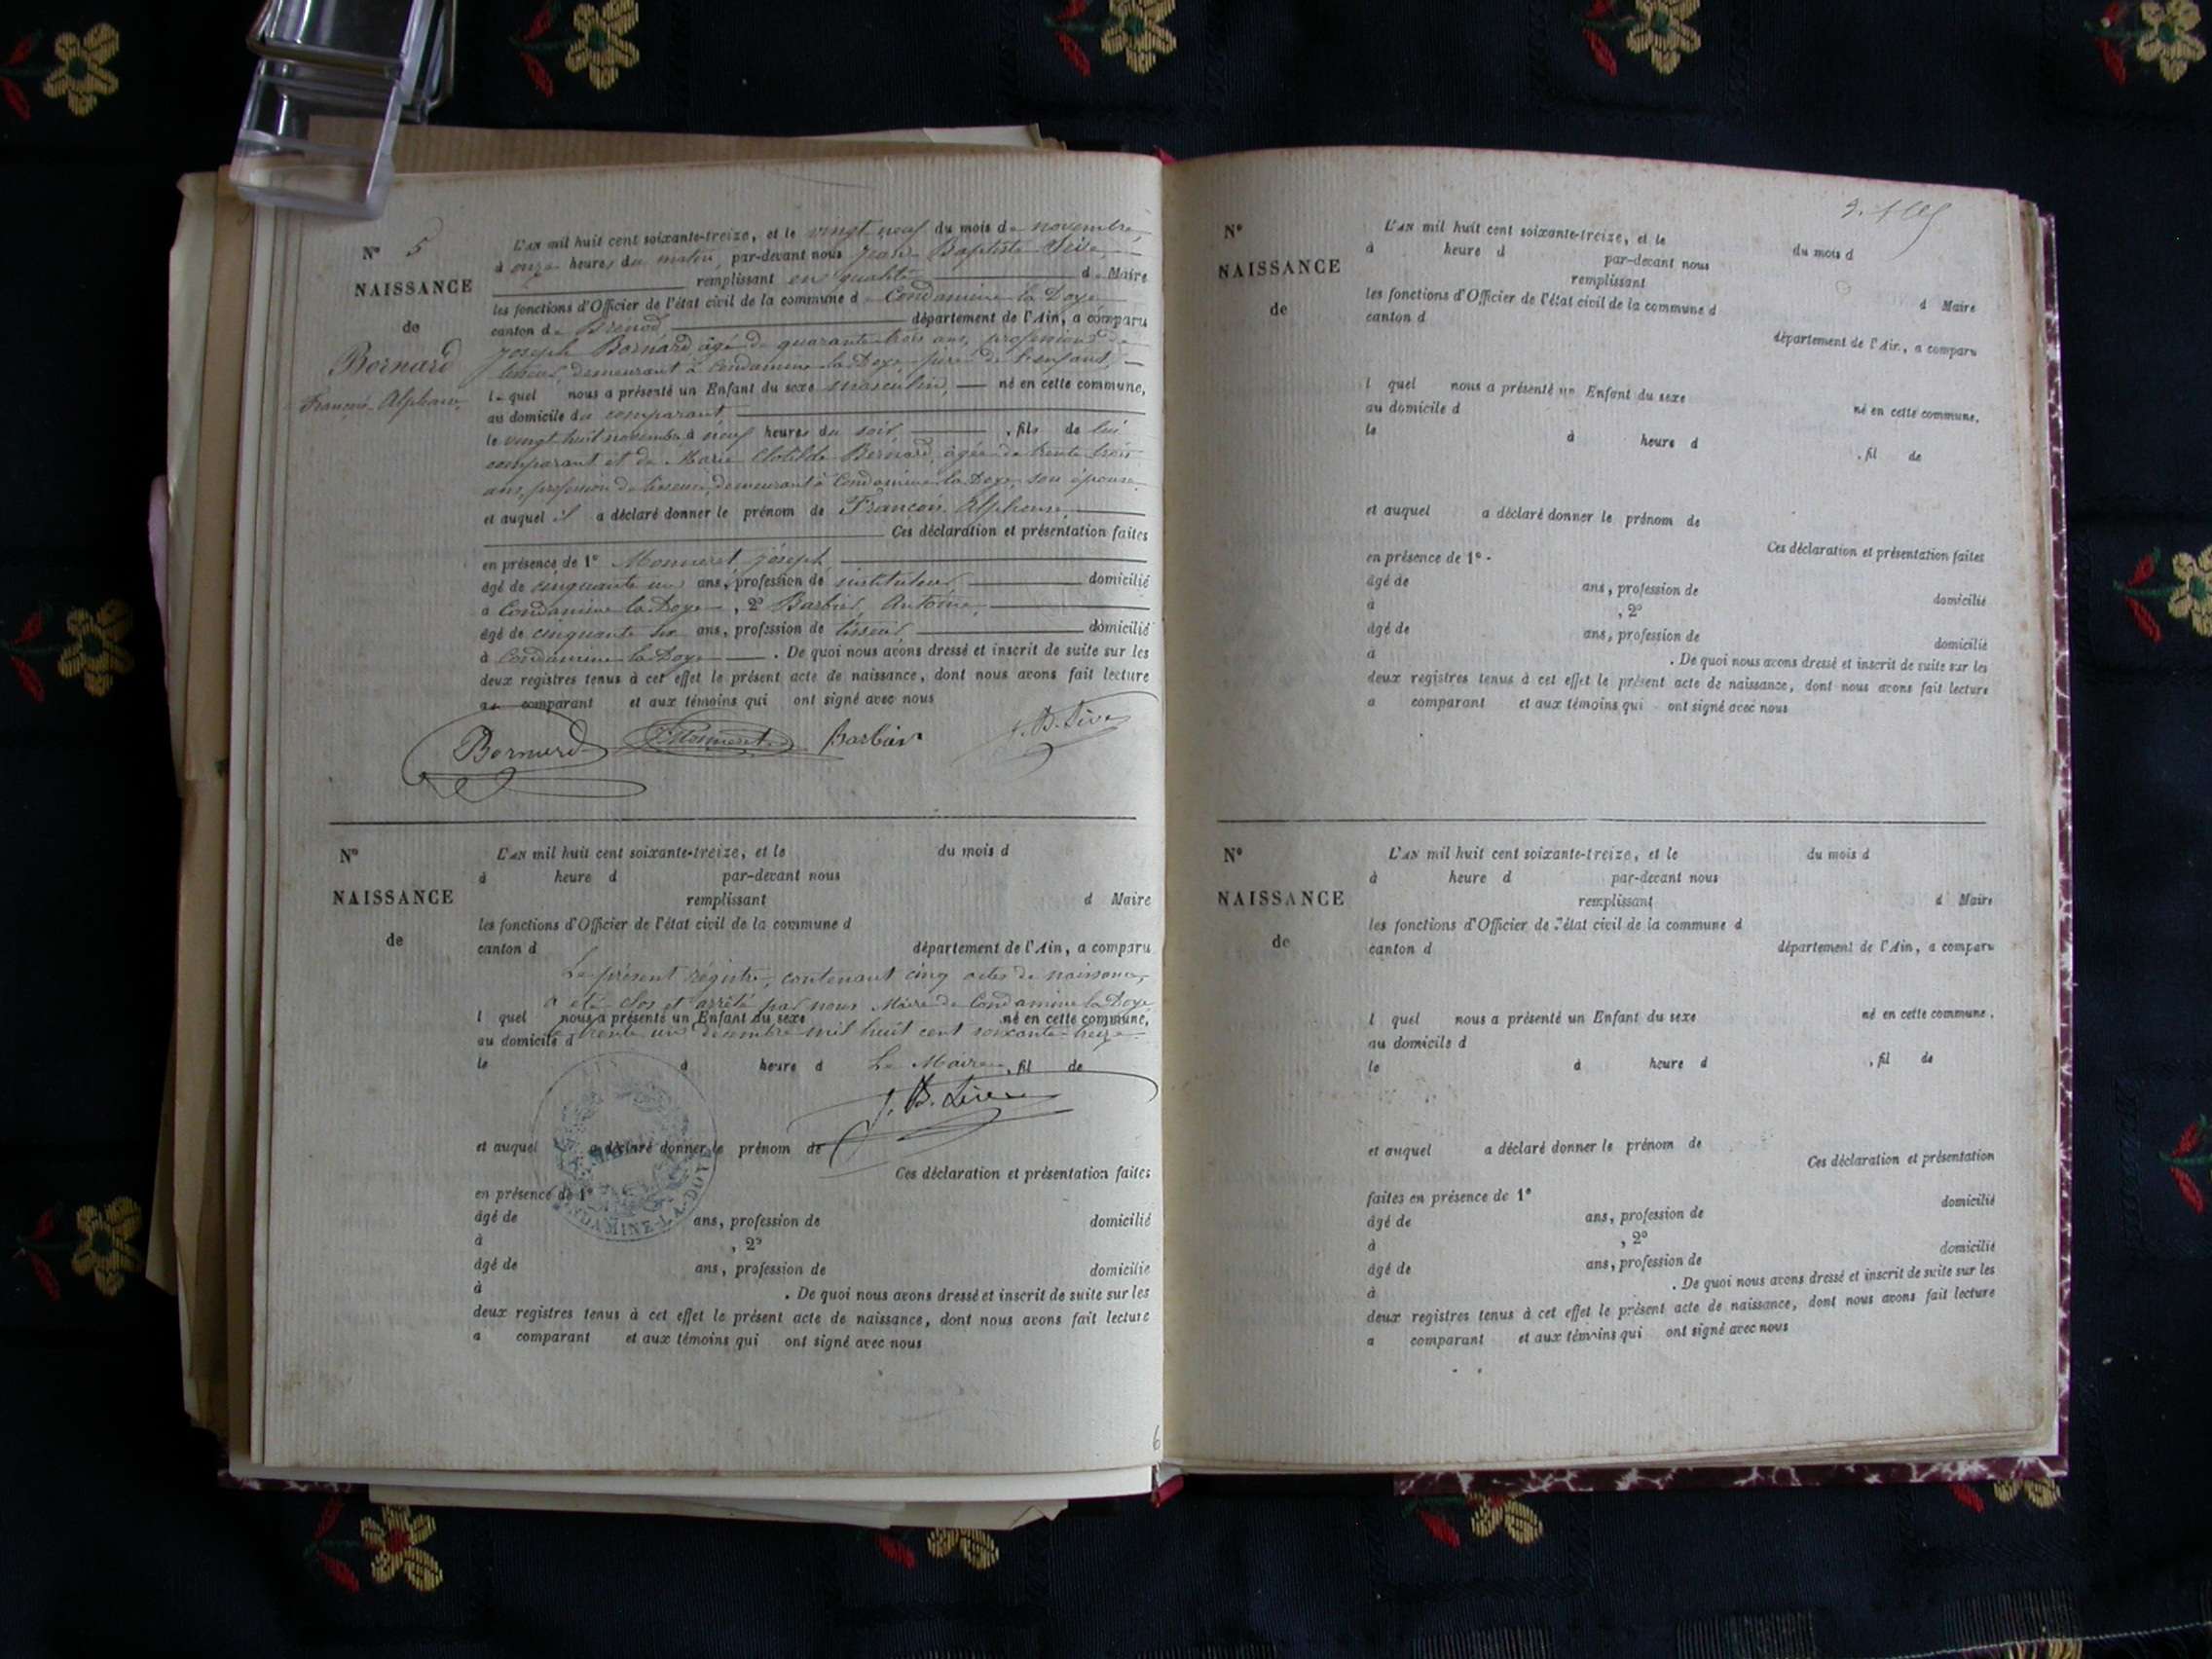 N° 5
NAISSANCE
de
Bornard
François Alphonse
L'AN mil huit cent soixante-treize, et le vingt neuf du mois de novembre,
à onze heures du matin, par-devant nous Jean Baptiste
remplissant en qualité de Maire
les fonctions d'Officier de l'état civil de la commune de Condamine la Doye
canton de Brenod département de l'Ain, a comparu
Joseph Bornard âgé de quarante trois ans, profession de
tisseur, demeurant à Condamine la Doye, père de l'enfant,
lequel nous a présenté un Enfant du sexe masculin, né en cette commune,
au domicile du comparant,
le vingt huit novembre à neuf heures du soir, , fils de lui
comparant et de Marie Clotilde Bernard, âgée de trente trois
ans, profession de tisseuse, demeurant à Condamine la Doye, son épouse
et auquel il a déclaré donner le prénom de François Alphonse,
Ces déclaration et présentation faites
en présence de 1° Monneret, Joseph,
âgé de cinquante un ans, profession de instituteur, domicilié
à Condamine la Doye , 2° Barbier, Antoine,
âgé de cinquante six ans, profession de tisseur, domicilié
à Condamine la Doye . De quoi nous avons dressé et inscrit de suite sur les
deux registres tenus à cet effet le présent acte de naissance, dont nous avons fait lecture
au comparant et aux témoins qui ont signé avec nous
Bornard Monneret Barbier J. B.
N°
NAISSANCE
de
L'AN mil huit cent soixante-treize, et le du mois d
à heure d par-devant nous
remplissant d Maire
les fonctions d'Officier de l'état civil de la commune d
canton d département de l'Ain, a comparu
Le présent registre, contenant cinq actes de naissance,
a été clos et arrêté par nous Maire de Condamine la Doye
l quel nous a présenté un Enfant du sexe né en cette commune,
le trente un décembre mil huit cent soixante-treize
au domicile d
le à heure d Le Maire , fil de
J. B.
et auquel a déclaré donner le prénom de
Ces déclaration et présentation faites
en présence de 1°
DAMINE-LA-DOYE
âgé de ans, profession de domicilié
à , 2°
âgé de ans, profession de domicilié
à . De quoi nous avons dressé et inscrit de suite sur les
deux registres tenus à cet effet le présent acte de naissance, dont nous avons fait lecture
a comparant et aux témoins qui ont signé avec nous
6
N°
NAISSANCE
de
L'AN mil huit cent soixante-treize, et le du mois d
à heure d par-devant nous
remplissant d Maire
les fonctions d'Officier de l'état civil de la commune d
canton d département de l'Ain, a comparu
l quel nous a présenté un Enfant du sexe né en cette commune,
au domicile d
le à heure d , fil de
et auquel a déclaré donner le prénom de
Ces déclaration et présentation faites
en présence de 1°
âgé de ans, profession de domicilié
à , 2°
âgé de ans, profession de domicilié
à . De quoi nous avons dressé et inscrit de suite sur les
deux registres tenus à cet effet le présent acte de naissance, dont nous avons fait lecture
a comparant et aux témoins qui ont signé avec nous
N°
NAISSANCE
de
L'AN mil huit cent soixante-treize, et le du mois d
à heure d par-devant nous
remplissant d Maire
les fonctions d'Officier de l'état civil de la commune d
canton d département de l'Ain, a comparu
l quel nous a présenté un Enfant du sexe né en cette commune,
au domicile d
le à heure d , fil de
et auquel a déclaré donner le prénom de
Ces déclaration et présentation
faites en présence de 1°
âgé de ans, profession de domicilié
à , 2°
âgé de ans, profession de domicilié
à . De quoi nous avons dressé et inscrit de suite sur les
deux registres tenus à cet effet le présent acte de naissance, dont nous avons fait lecture
a comparant et aux témoins qui ont signé avec nous